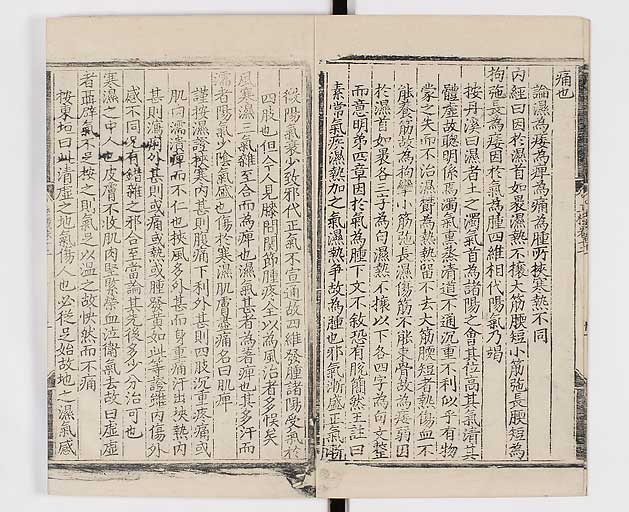 痛也
論濕為痿為痺為痛為腫所挾寒熱不同
內經曰因於濕首如裹濕熱不攘大筋䎡短小筋弛長䎡短為
拘弛長為痿因於氣為腫四維相代陽氣乃竭
按丹溪曰濕者土之濁氣首為諸陽之會其位高其氣清其
體虛故聰明係焉濁氣熏蒸清道不通沉重不利似乎有物
蒙之失而不治濕鬱為熱熱留不去大筋䎡短者熱傷血不
能養筋故為拘攣小筋弛長濕傷筋不能束骨故為痿弱因
於濕首如裹各三字為句濕熱不攘以下各四字為句文整
而意明第四章因於氣為腫下文不敘恐有脫簡然王註曰
素常氣疾濕熱加之氣濕熱爭故為腫也邪氣漸盛正氣
微陽氣衰少致邪代正氣不宣通故四維發腫諸陽受氣於
四肢也但今人見膝間關節腫疼全以為風治者多悞矣
風寒濕三氣雜至合而為痺也濕氣甚者為著痺也其多汗而
濡者陽氣少陰氣盛也傷於寒濕肌膚盡痛名曰肌痺
謹按濕證挾寒內甚則腹痛下利外甚則四肢沉重疼痛或
肌肉濡潰痺而不仁也挾風多外甚而身重痛汗出挾熱內
甚則瀉痢外甚則或痛或熱或腫發黃如此等證雖內傷外
感不同況有錯雜之邪合至當論其先後多少分治可也
寒濕之中人也皮膚不收肌肉堅緊榮血泣衛氣去故曰虛虛
者聶辟氣不足按之則氣足以溫之故快然而不痛
按東垣曰此清虛之地氣傷人也必從足始故地之濕氣感